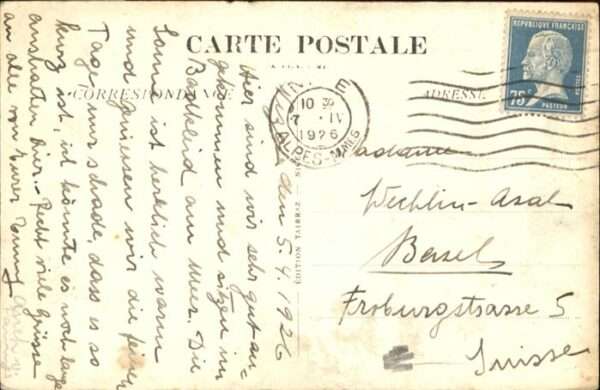 CARTE POSTALE
CORRESPONDANCE
ADRESSE
RÉPUBLIQUE FRANÇAISE
75c
POSTES
PASTEUR
10
7 · IV
1926
ALPES-MMES
ÉDITION TAIRRAZ
den 5.4.1926
Hier sind wir sehr gut an-
gekommen und sitzen im
Badkleid am Meer. Die
Sonne ist herrlich warm
und geniessen wir die feinen
Tage, nur schade, dass es so
kurz ist, ich könnte es noch lange
aushalten hier. Recht viele Grüsse
an alle von Eurer
Madame
Wechlin-Asal
Basel
Froburgstrasse 5
Suisse